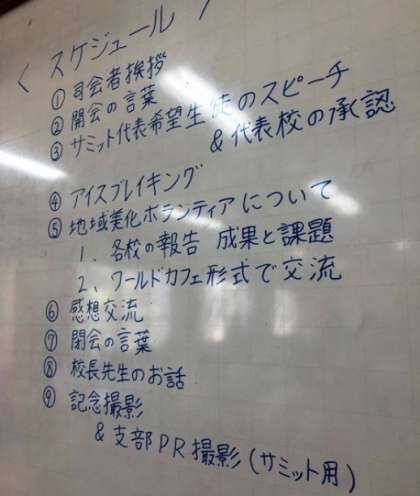 〈スケジュール〉
① 司会者挨拶
② 開会の言葉
③ サミット代表希望生徒のスピーチ
& 代表校の承認
④ アイスブレイキング
⑤ 地域美化ボランティアについて
1、各校の報告 成果と課題
2、ワールドカフェ形式で交流
⑥ 感想交流
⑦ 閉会の言葉
⑧ 校長先生のお話
⑨ 記念撮影
& 支部PR撮影(サミット用)